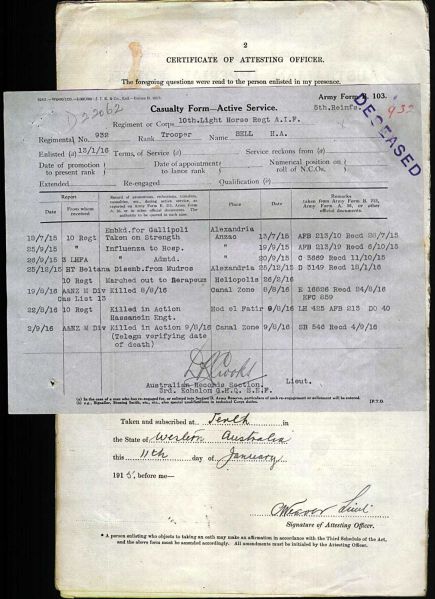 2
CERTIFICATE OF ATTESTING OFFICER.
The foregoing questions were read to the person enlisted in my presence.
D 22062
Army Form B. 103.
Casualty Form—Active Service.
5th.Reinfs.
932
DECEASED
Regiment or Corps 10th.Light Horse Regt A.I.F.
Regimental No. 932 Rank Trooper Name BELL H.A.
Enlisted (a) 13/1/16 Terms of Service (a) Service reckons from (a)
Date of promotion to present rank Date of appointment to lance rank Numerical position on roll of N.C.Os.
Extended Re-engaged Qualification (b)
Report
Date From whom received
Record of promotions, reductions, transfers, casualties, etc., during active service, as reported on Army Form B. 213, Army Form A. 36, or in other official documents. The authority to be quoted in each case.
Place
Date
Remarks taken from Army Form B. 213, Army Form A. 36, or other official documents.
Embkd.for Gallipoli Alexandria
19/7/15 10 Regt Taken on Strength Anzac 13/7/15 AFB 213/10 Recd 26/7/15
25/9/15 " Influenza to Hosp. " 19/9/15 AFB 213/19 Recd 6/10/15
26/9/15 3 LHFA " Admtd. " 20/9/15 C 3669 Recd 11/10/15
25/12/15 HT Beltana Disemb.from Mudros Alexandria 25/12/15 D 3149 Recd 18/1/16
10 Regt Marched out to Serapeum Heliopolis 26/2/16
19/8/16 A&NZ M Div Killed 8/8/16 Canal Zone 8/8/16 E 16826 Recd 24/8/16
Cas List 13 EFC 859
22/8/16 10 Regt Killed in Action Hod el Fatir 9/8/16 LH 425 AFB 213 DO 40
Hassanein Engt.
2/9/16 A&NZ M Div Killed in Action 9/8/16 Canal Zone 9/8/16 SB 546 Recd 4/9/16
(Telegm verifying date
of death)
Lieut.
Australian Records Section.
3rd. Echelon G.H.Q. E.E.F.
[P.T.O.
Taken and subscribed at Perth in
the State of Western Australia
this 11th day of January
1915, before me—
Weaver Lieut
Signature of Attesting Officer.
* A person enlisting who objects to taking an oath may make an affirmation in accordance with the Third Schedule of the Act,
and the above form must be amended accordingly. All amendments must be initialed by the Attesting Officer.